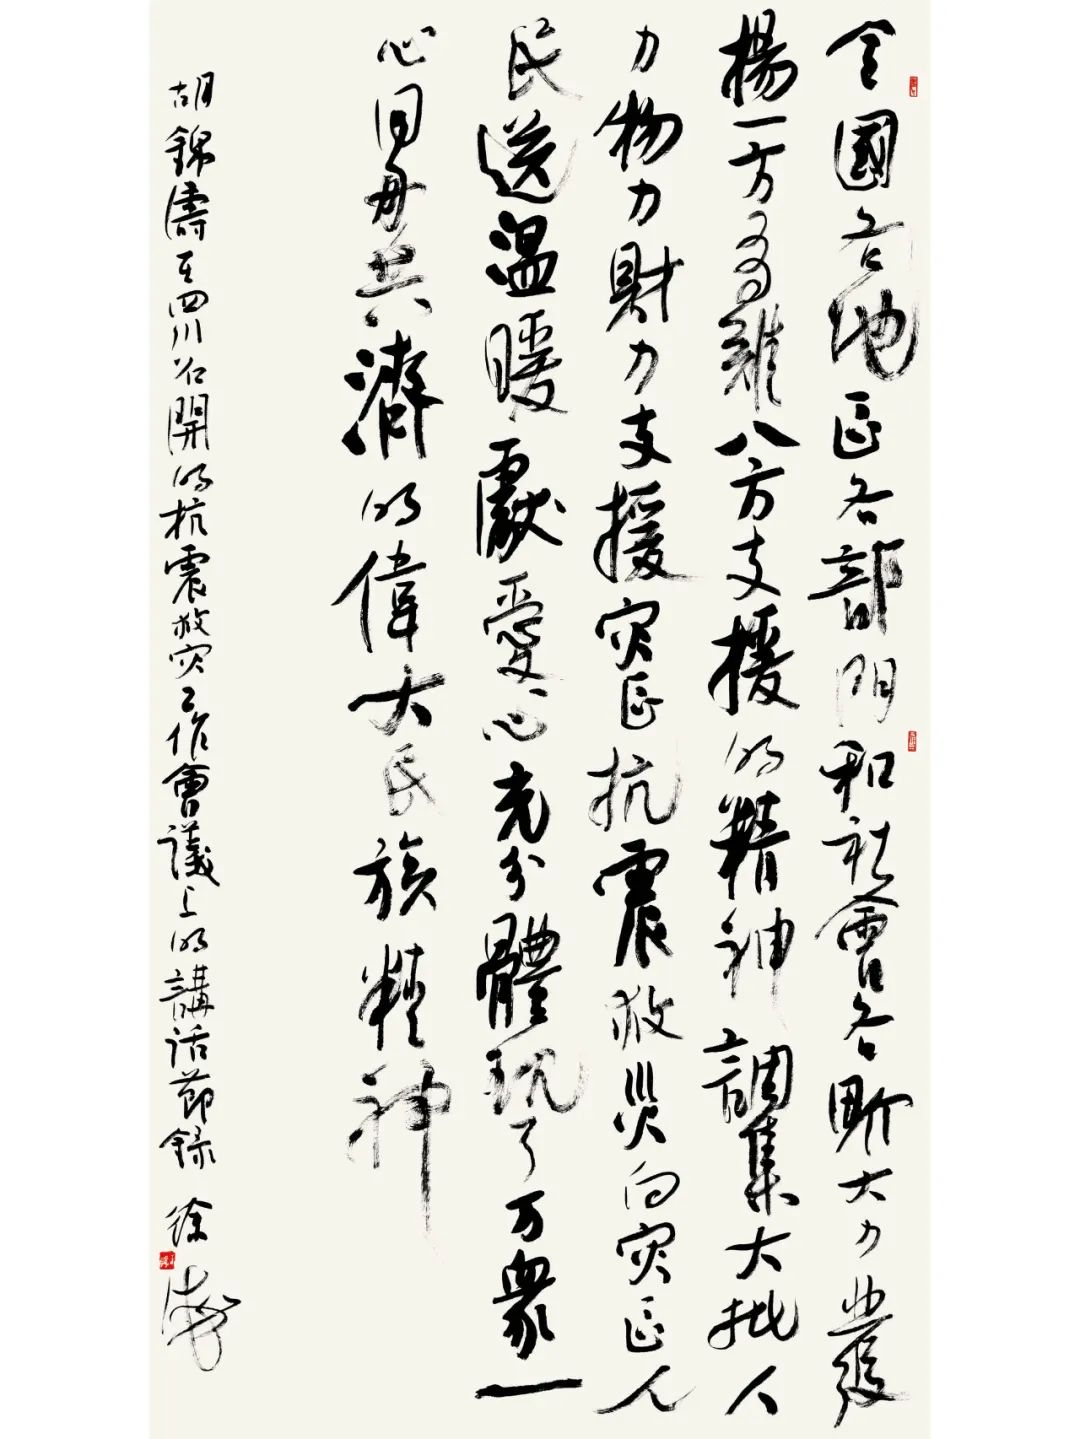 全國各地區各部門和社會各界大力發
揚一方有難八方支援的精神調集大批人
力物力財力支援灾區抗震救災向灾區人
民送溫暖獻愛心充分體現了万衆一
心同舟共濟的偉大民族精神
胡錦濤在四川召開的抗震救灾工作會議上的講话節録 徐海